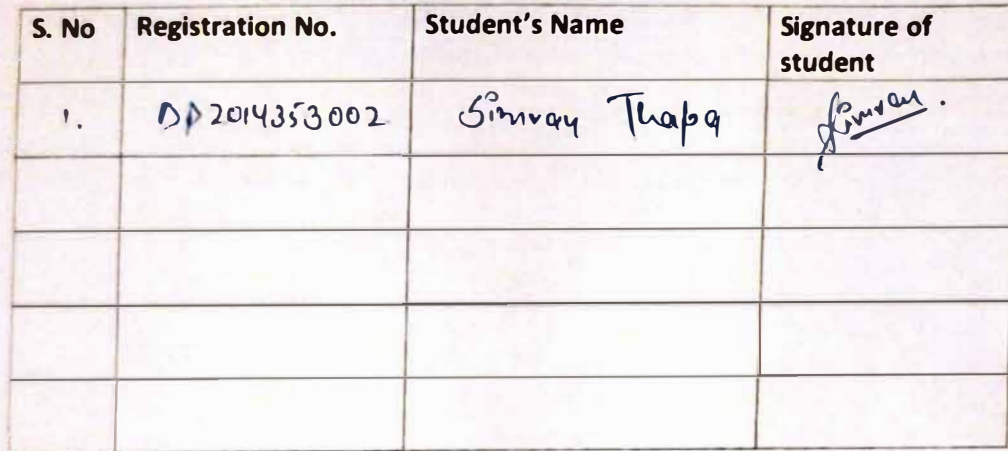 S. No Registration No. Student's Name Signature of student
1. DD2014353002 Simran Thapa Simran.